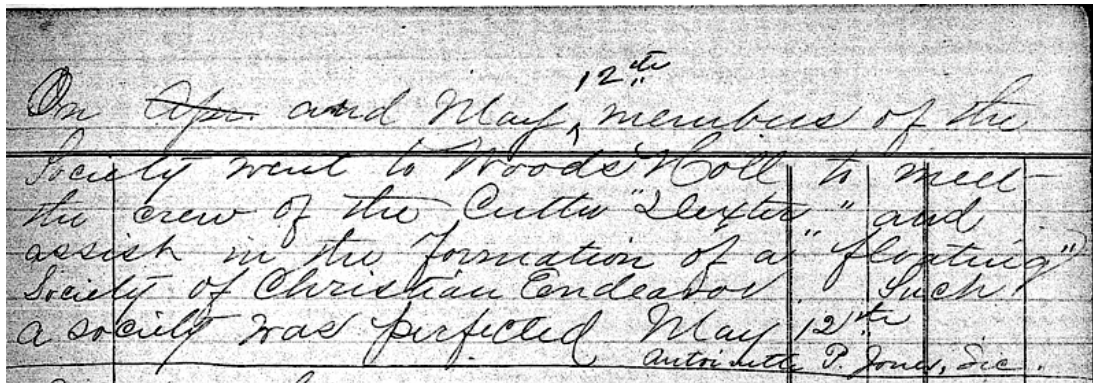 On ~~Apr.~~ and May ‸12th members of the
Society went to Woods Holl to meet
the crew of the Cutter "Dexter" and
assist in the formation of a "floating"
Society of Christian Endeavor. Such
a society was perfected May 12th
Antoinette P. Jones, Sec.